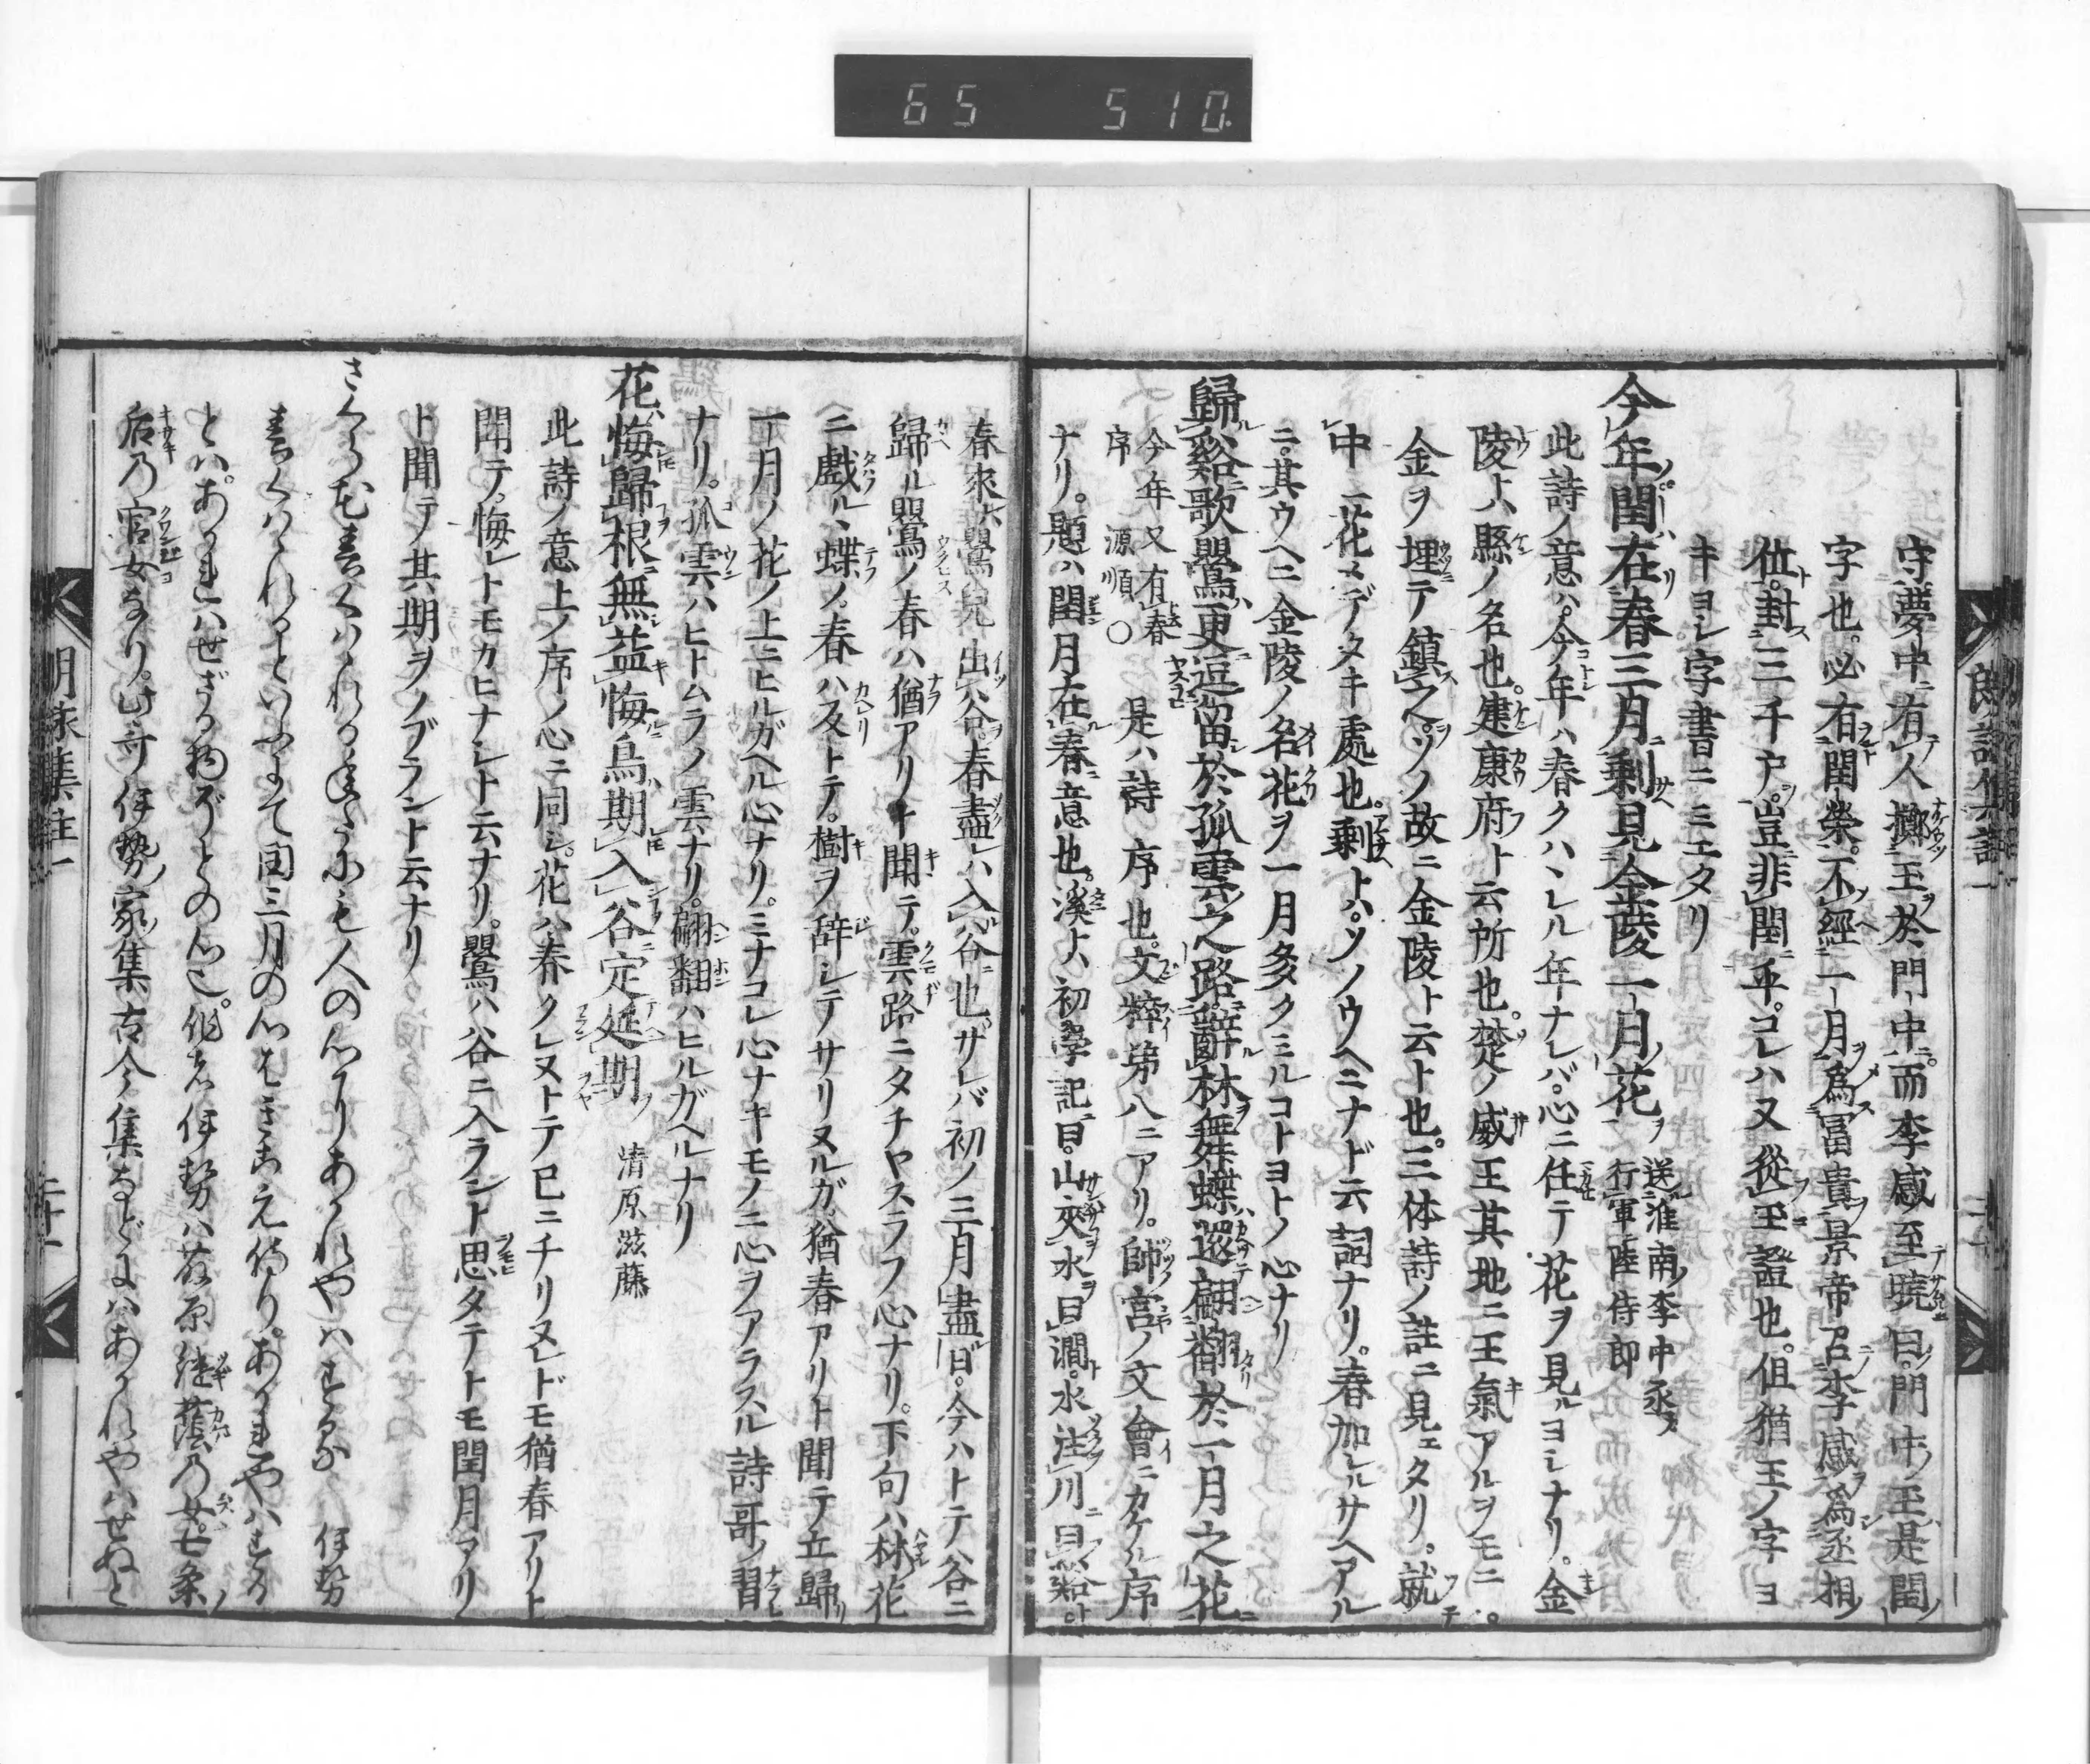 65 510
守夢中有人擲王於門中而李感至曉曰門中王是閏
字也必有閏榮不經一月為冨貴景帝召李感為丞相
位封三千戸豈非閏乎コレハ又從王證也但猶王ノ字ヨ
キヨシ字書ニミエタリ
今年閏在春三月剰見金陵一月花 送淮南李中丞行軍 陸侍郎
此詩ノ意ハ今年ハ春クハヽレル年ナレバ心ニ任テ花ヲ見ルヨシナリ金
陵トハ縣ノ名也建康府ト云所也楚ノ威王其地ニ王氣アルヲモニ
金ヲ埋テ鎮之ソノ故ニ金陵ト云ト也三体詩ノ註ニ見エタリ就
中花メデタキ處也剰トハソノウヘニナド云詞ナリ春加レルサヘアル
ニ其ウヘニ金陵ノ名花ヲ一月多クミルコトヨトノ心ナリ
歸谿歌鶯更逗留於孤雲之路辭林舞蝶還翩翻於一月之花
今年又有春序 源順 ○ 是ハ詩序也文粹第八ニアリ師宮ノ文會ニカケル序
ナリ題ハ閏月在春意也溪ハ初學記曰山夾水曰澗水注川曰谿ト
春來ハ鶯兒出谷春盡ハ入谷也サレバ初ノ三月盡日今ハトテ谷ニ
歸ル鶯ノ春ハ猶アリト聞テ雲路ニタチヤスラフ心ナリ下句ハ林花
ニ戯ルヽ蝶ノ春ハ又トテ樹ヲ辞シテサリヌルガ猶春アリト聞テ立歸リ
一月ノ花ノ上ニヒルガヘル心ナリミナコレ心ナキモノニ心ヲアラスル詩哥ノ習
ナリ孤雲ハヒトムラノ雲ナリ翩翻ハヒルガヘルナリ
花悔歸根無益悔鳥期入谷定延期 清原滋藤
此詩ノ意上ノ序ノ心ニ同シ花ハ春クレヌトテ已ニチリヌレドモ猶春アリト
聞テ悔レトモカヒナシト云ナリ鶯ハ谷ニ入ラント思タテトモ閏月アリ
ト聞テ其期ヲノブラント云ナリ
さくら花春くはゝれる年だにも人の心にあかれやはする 伊勢
春くはゝれるといふよて閏三月の心はきこえ侍りあかれやはする
とはあかれはせざる物ぞとの心也作者伊勢は藤原継蔭乃女七条
后乃官女なり此哥伊勢家集古今集などにはあかれやはせぬと
朗詠集註一
二十一